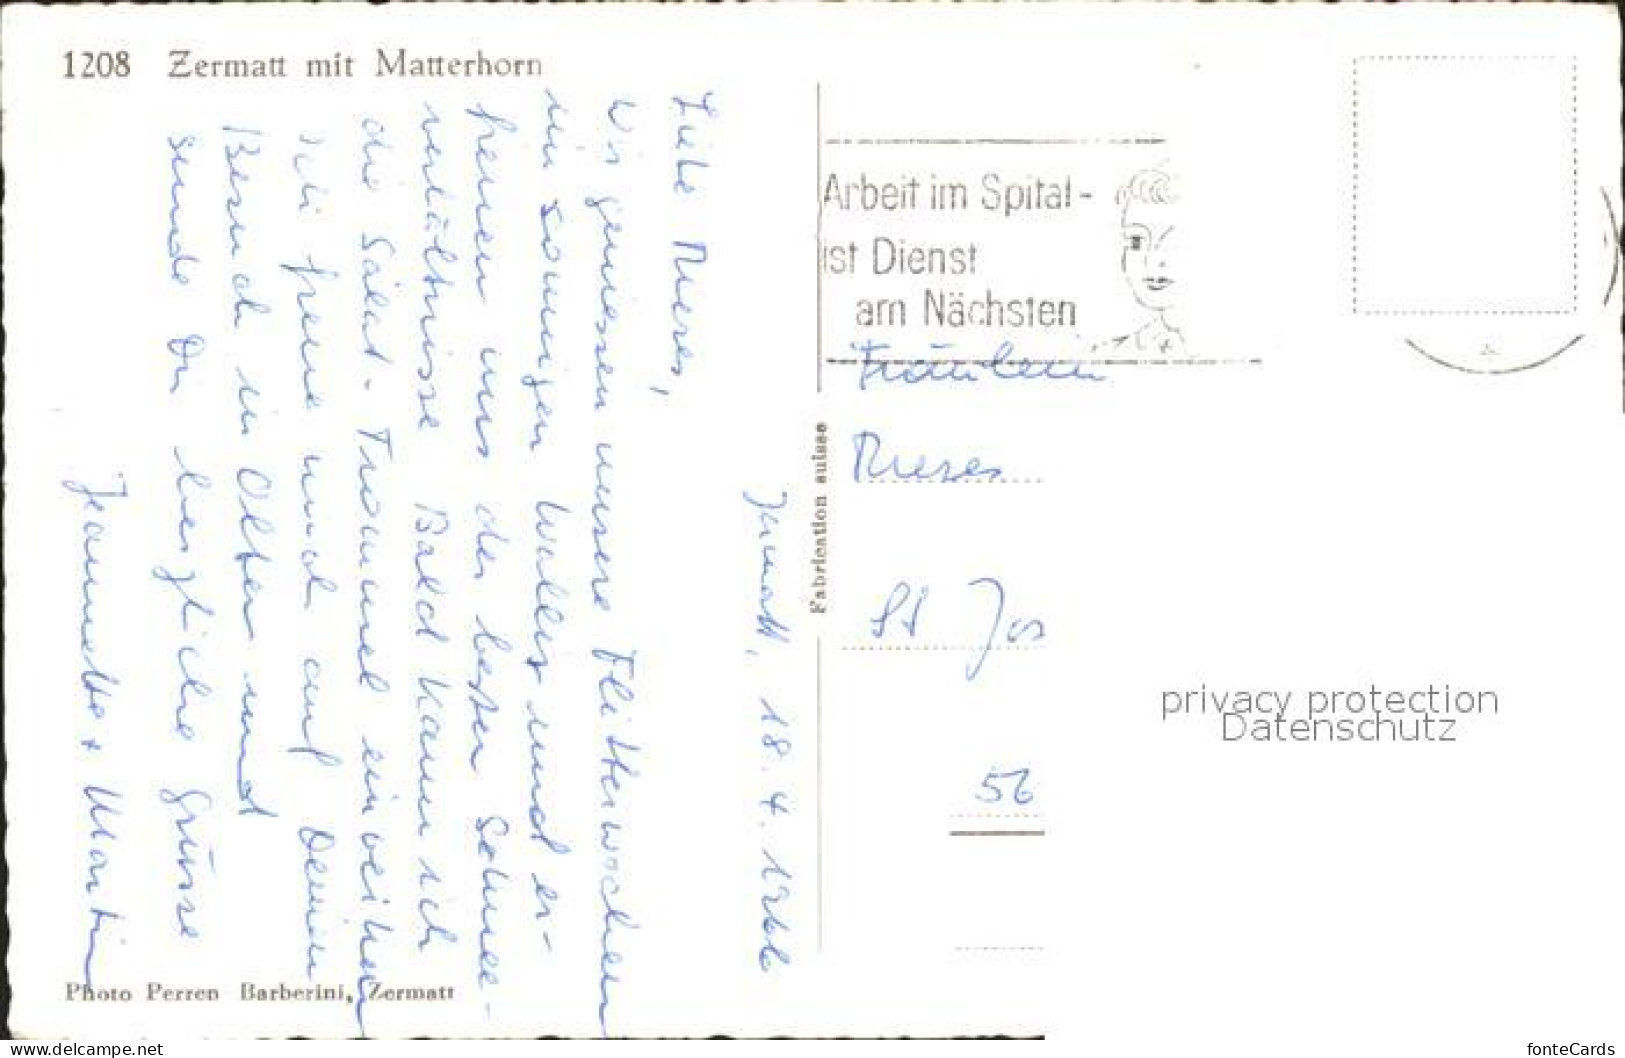 1208 Zermatt mit Matterhorn
Zermatt, 18. 4. 1966
Liebe
Wir geniessen unsere Flitterwochen
im sonnigen Wallis und er-
freuen uns der besten Schnee-
verhältnisse Bald kann ich
die Salat-Trommel einweihen
Ich freue mich auf Deinen
Besuch in Olten und
sende Dir herzliche Grüsse
Jeannette + Martin
Photo Perren Barberini, Zermatt
Fabrication suisse
Arbeit im Spital -
ist Dienst
am Nächsten
Fräulein
56
privacy protection
Datenschutz
www.delcampe.net
fonteCards